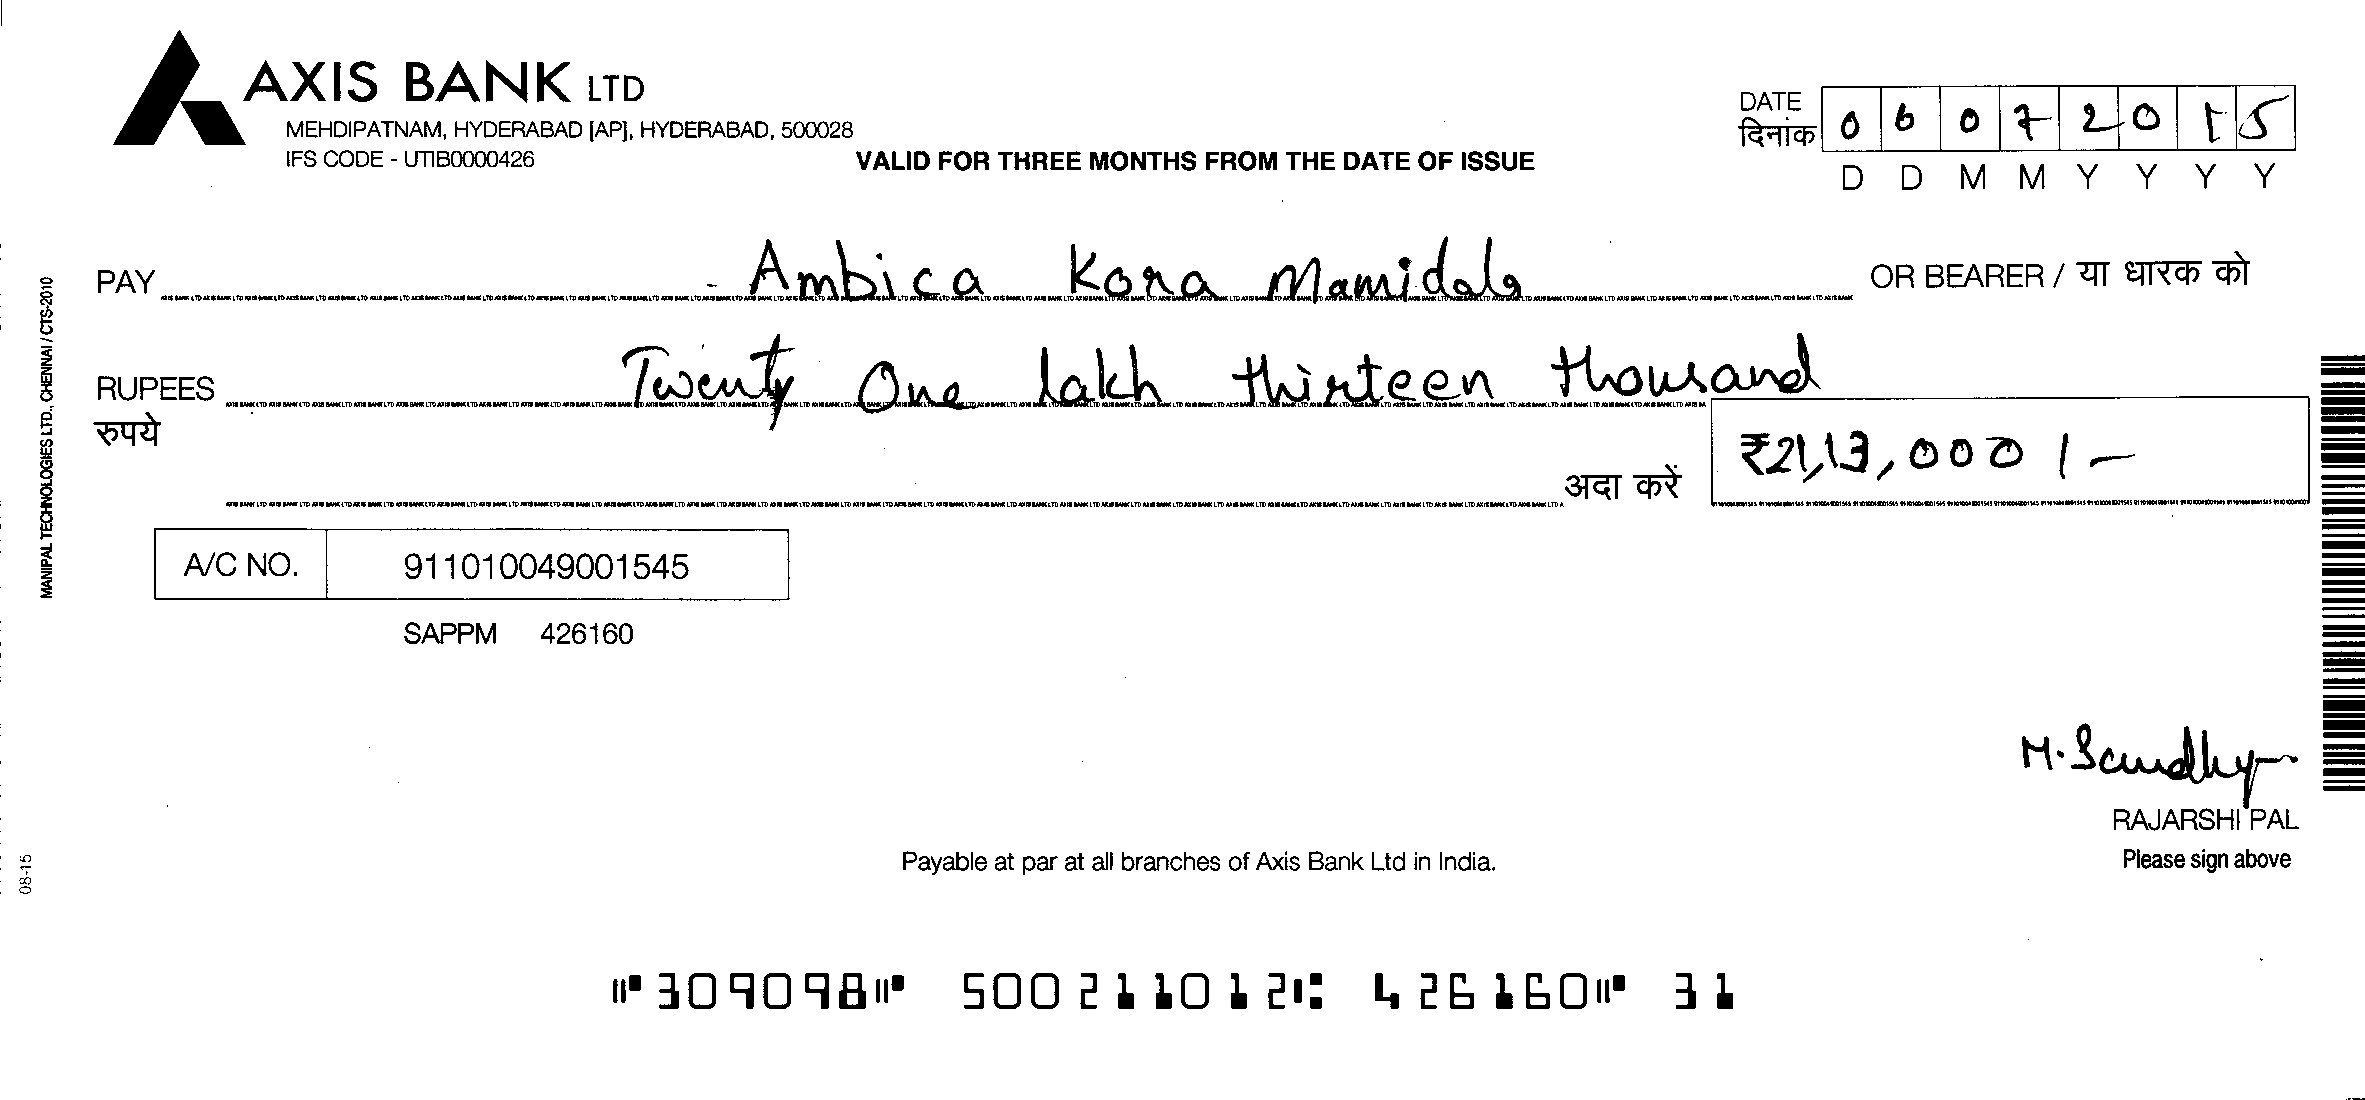 AXIS BANK LTD
MEHDIPATNAM, HYDERABAD [AP], HYDERABAD, 500028
IFS CODE - UTIB0000426
VALID FOR THREE MONTHS FROM THE DATE OF ISSUE
DATE
दिनांक
0 6 0 7 2 0 1 5
D D M M Y Y Y Y
PAY Ambica Kora Mamidala OR BEARER / या धारक को
RUPEES Twenty One lakh thirteen thousand
रुपये
अदा करें ₹21,13,000/-
A/C NO. 911010049001545
SAPPM 426160
M. Sandhya
RAJARSHI PAL
Please sign above
Payable at par at all branches of Axis Bank Ltd in India.
MANIPAL TECHNOLOGIES LTD., CHENNAI / CTS-2010
08-15
⑈309098⑈ 500211012⑆ 426160⑈ 31